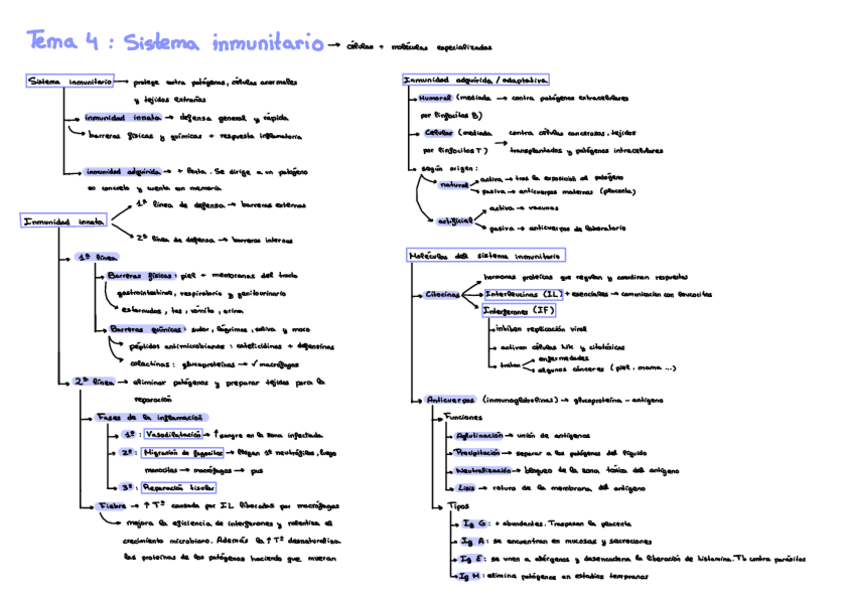 Tema 4 : Sistema inmunitario → células + moléculas especializadas
Sistema inmunitario → protege contra patógenos, células anormales
y tejidos extraños
inmunidad innata → defensa general y rápida
barreras físicas y químicas + respuesta inflamatoria
inmunidad adquirida → + lenta. Se dirige a un patógeno
en concreto y cuenta con memoria
Inmunidad innata
1ª línea de defensa → barreras externas
2ª línea de defensa → barreras internas
1ª línea
Barreras físicas: piel + membranas del tracto
gastrointestino, respiratorio y genitourinario
estornudos, tos, vómito, orina
Barreras químicas: sudor, lágrimas, saliva y moco
péptidos antimicrobianos : catelicidinas + defensinas
colectinas : glucoproteínas → ✓ macrófagos
2ª línea → eliminar patógenos y preparar tejidos para la
reparación
Fases de la inflamación
1º : Vasodilatación → ↑ sangre en la zona infectada
2º : Migración de fagocitos → llegan 1º neutrófilos, luego
monocitos → macrófagos → pus
3º : Reparación tisular
Fiebre → ↑ Tª causada por IL liberadas por macrófagos
mejora la eficiencia de interferones y ralentiza el
crecimiento microbiano. Además la ↑ Tª desnaturaliza
las proteínas de los patógenos haciendo que mueran
Inmunidad adquirida / adaptativa
Humoral (mediada → contra patógenos extracelulares
por linfocitos B)
Celular (mediada → contra células cancerosas, tejidos
por linfocitos T) transplantados y patógenos intracelulares
según origen :
natural
activa → tras la exposición al patógeno
pasiva → anticuerpos maternos (placenta)
artificial
activa → vacunas
pasiva → anticuerpos de laboratorio
Moléculas del sistema inmunitario
Citocinas
hormonas proteicas que regulan y coordinan respuestas
Interleucinas (IL) + esenciales → comunicación con leucocitos
Interferones (IF)
inhiben replicación viral
activan células NK y citotóxicas
tratan
enfermedades
algunos cánceres (piel, mama ...)
Anticuerpos (inmunoglobulinas) → glucoproteína - antígeno
Funciones
Aglutinación → unión de antígenos
Precipitación → separar a los patógenos del líquido
Neutralización → bloqueo de la zona tóxica del antígeno
Lisis → rotura de la membrana del antígeno
Tipos
Ig G : + abundantes. Traspasan la placenta
Ig A : se encuentran en mucosas y secreciones
Ig E : se unen a alérgenos y desencadena la liberación de histamina. Tb contra parásitos
Ig M : elimina patógenos en estadios tempranos